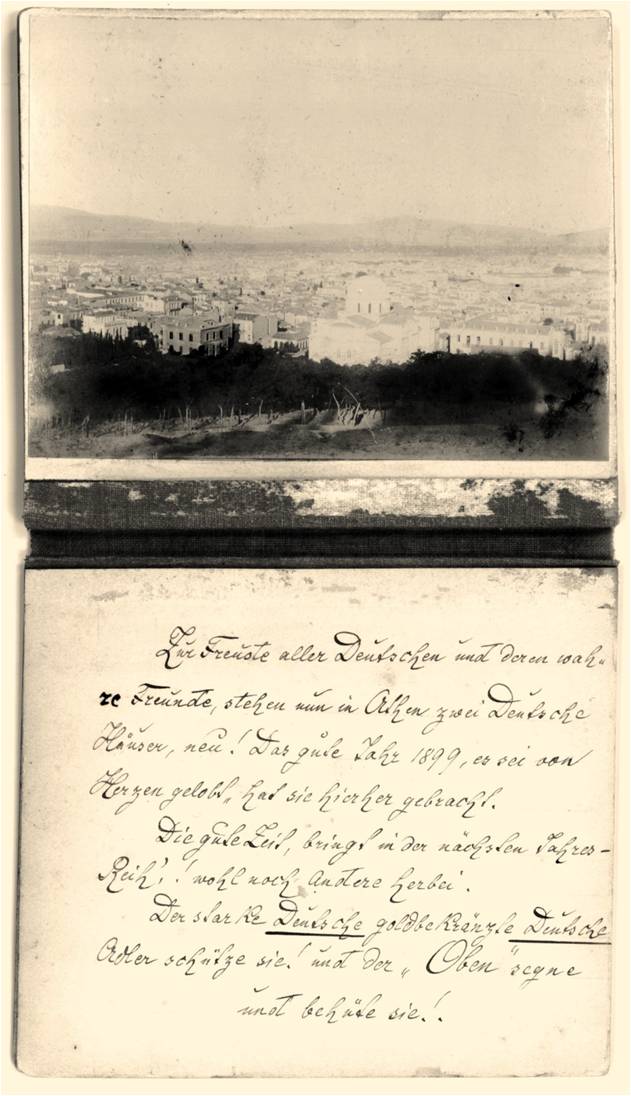 Zur Freuste aller Deutschen und deren wah-
re Freunde, stehen nun in Athen zwei Deutsche
Häuser, neu! Das gute Jahr 1899, es sei von
Herzen gelobt, hat sie hierher gebracht.
Die gute Zeit, bringt in der nächsten Jahres-
Reih'! wohl noch andere herbei.
Der starke Deutsche goldbekränzte Deutsche
Adler schütze sie! und der „Oben" segne
und behüte sie!.